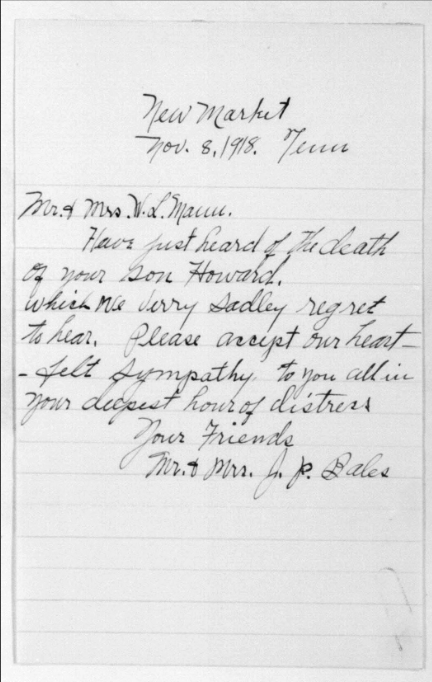 New Market
Nov. 8, 1918. Tenn
Mr. & Mrs. W. L. Mann.
Have just heard of the death
of your son Howard.
which we verry sadley regret
to hear. Please accept our heart-
-felt sympathy to you all in
your deepest hour of distress
Your Friends
Mr. & Mrs. J. P. Bales